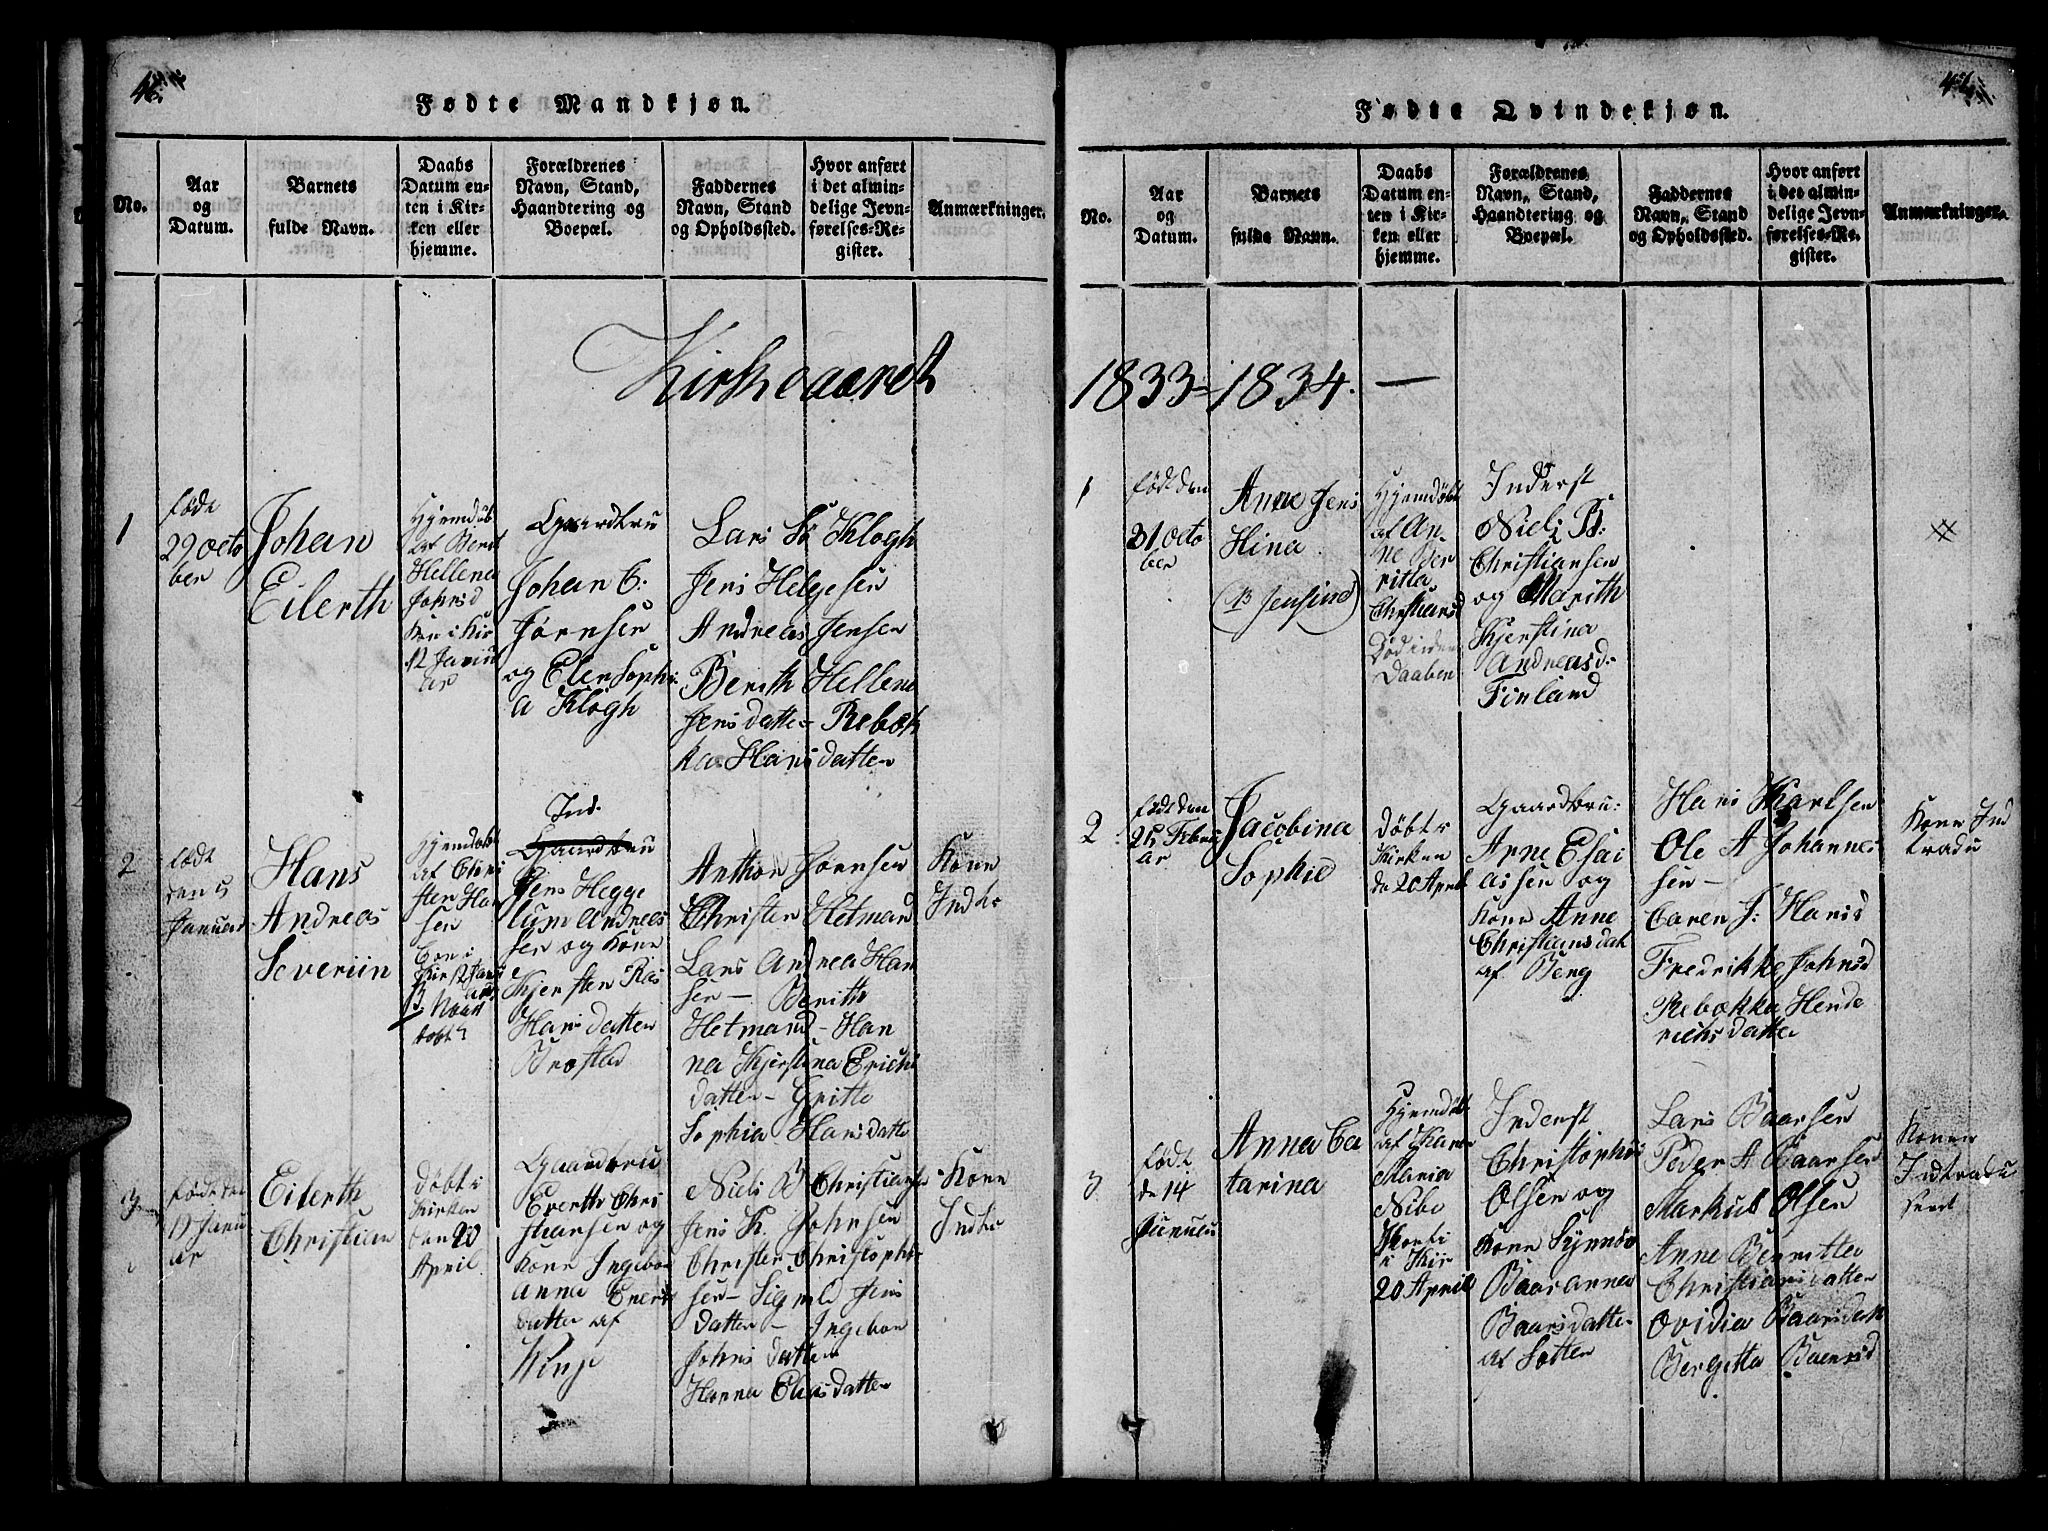 46.
Fødte Mandkjøn.
No.
Aar
og
Datum.
Barnets
fulde Navn.
Daabs
Datum en-
ten i Kir-
ken eller
hjemme.
Forældrenes
Navn, Stand,
Haandtering og
Boepæl.
Faddernes
Navn, Stand
og Opholdssted.
Hvor anført
i det almin-
delige Jevn-
førelses-Re-
gister.
Anmærkninger.
Kirkvaaret
1
føde
29 octo
ber
Johan
Eilerth
Hjemdøb
af Berit
Hellena
Johnsd
Kon i Kir
12 Janu
ar
Gaardbru
Johan C.
Jørnsen
og Elen Sophi
a Klogh
Lars Kl Klogh
Jens Helgesen
Andreas Jensen
Berith Hellene
Jensdatter Rebæk
ka Hansdatter
2
født
den 5
Januar
Hans
Andreas
Severiin
Hjemdøbt
af Chri
sten Han
sen
Ind.
Gaardbru
Jens Hegge
lum Andreas
sen og Kone
Kjersten
Hansdatter
Brøstad
Anthon Jørnsen
Christen Hetmand
Lars Andrea Han
sen — Berith
Hetmand — Han
na Kjerstina Erichs
datter — Gritte
Sophia Hansdatte
Kone
Indtr
3
føde den
19 Janu
ar
Eilerth
Christian
Døbt i
Kirken
den 20
April
Gaardbru
Everth Chri
stiansen og
Kone Ingebor
Anna Evers
datter af
Winje
Niels B Christianse
Jens K. Johnsen
Christen Christophe
sen — Signild Jens
datter — Ingebor
Johns datter
Hanna Eliasdatter
Kone
Indtr
Fødte Qvindekjøn.
No.
Aar
og
Datum.
Barnets
fulde Navn.
Daabs
Datum en-
ten i Kir-
ken eller
hjemme.
Forældrenes
Navn, Stand,
Haandtering og
Boepæl.
Faddernes
Navn, Stand
og Opholdssted.
Hvor anført
i det almin-
delige Jevn-
førelses-Re-
gister.
Anmærkninger.
1833=1834. —
1
født den
31 octo
ber
Anne Jens
Hina
(B Jensine)
Hjemdøbt
af An
ne Ber
ritta
Christiansd
Død i den
Daaben
Inderst
Niels B:
Christiansen
og Marith
Kjerstina
Andreasd.
Finland
2
født den
25 Febru
ar
Jacobina
Sophie
Døbt i
Kirken
de 20 April
Gaardbru:
Arne Esai
assen og
Kone Anne
Christiansdat
af Beng
Hans Karlsen
Ole A Johannes
sen —
Caren J: Hans
Fredrikke Johnsd
Rebækka Hende
richsdatter
Kone Ind
tradu
3
født
de 14
Januar
Anna Ca
tarina
Hjemdøbt
af Karen
Maria
Nibe
i Kir
20 April
Inderst
Christopher
Olsen og
Kone Synnøv
Baaranna
Baarsdatter
af Sætter
Lars Baarsen
Peder A Baarsen
Markus Olsen
Anne Berritte
Christiansdatter
Ovidia Baarsdatt
Bergitta Baarsd
Konen
Indtradu